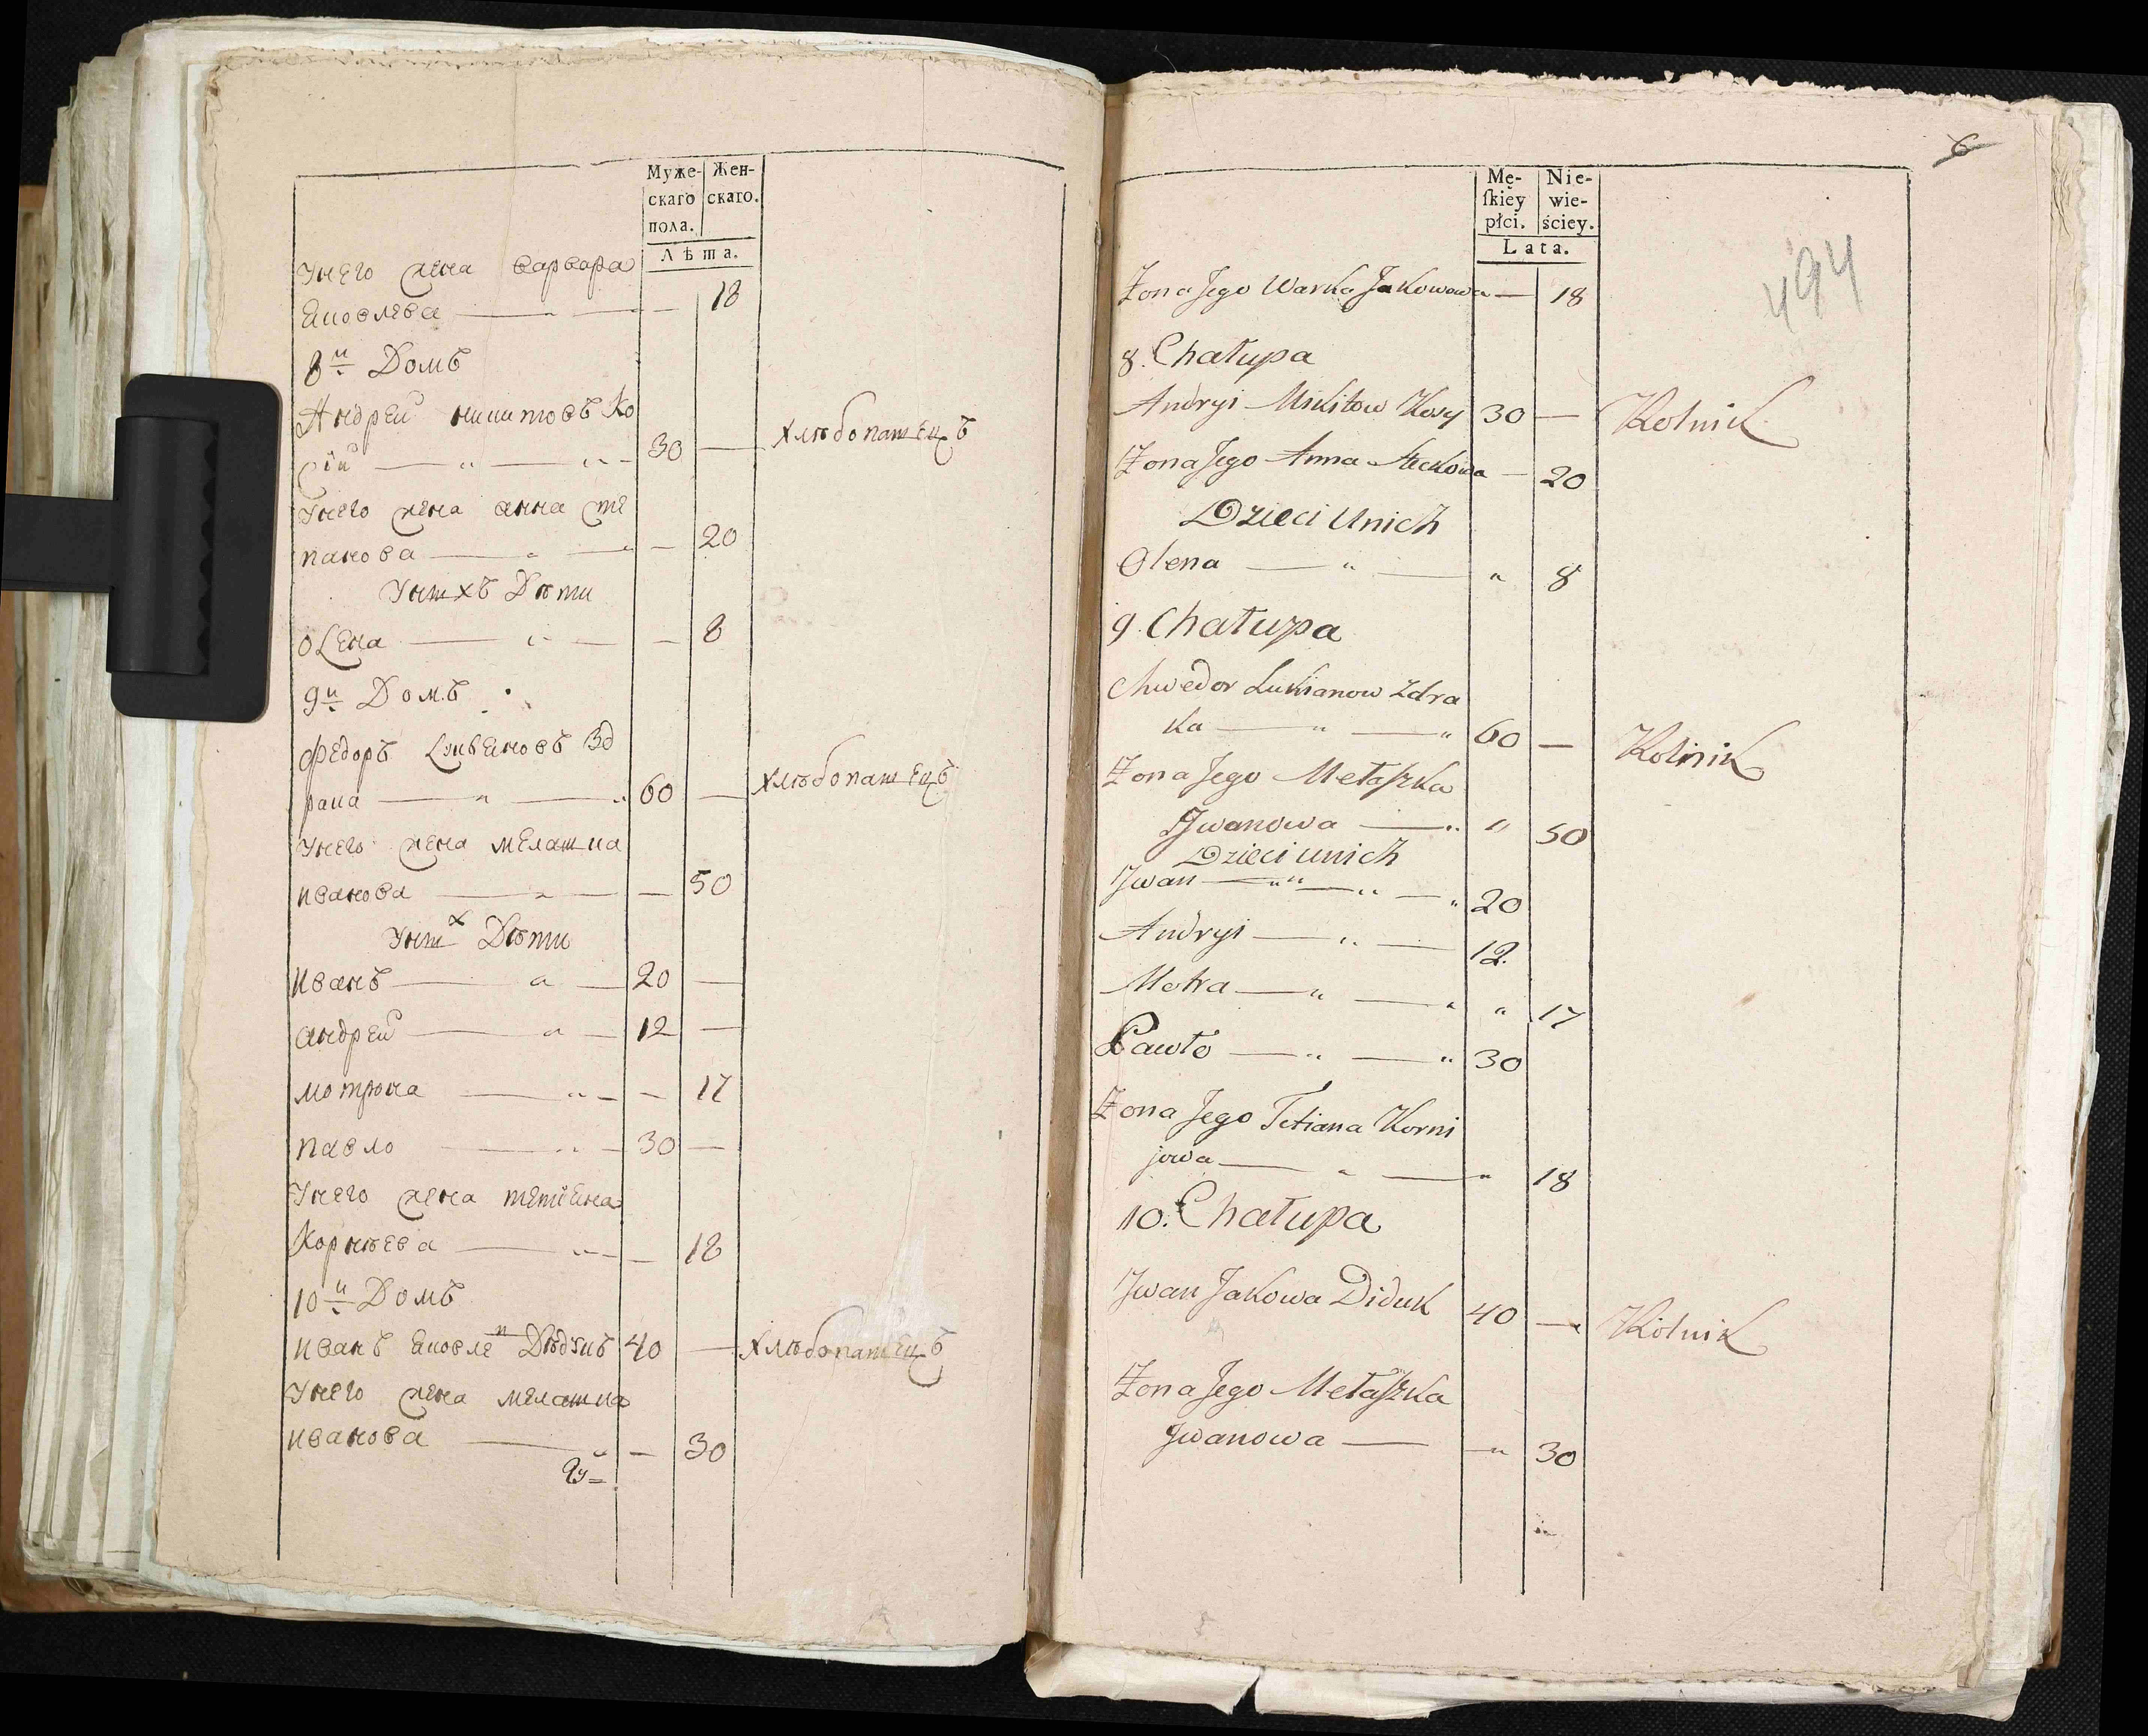 Муже-
скаго
пола.
Жен-
скаго.
Лѣта.
Унего жена варвара
Яковлева — „ — — 18
8й Домъ
Андрей никитовъ Ко
сій — „ — „ — 30 — хлѣбопашецъ
Унего жена анна сте
панова — „ — — 20
Унихъ Дѣти
олена — „ — — 8
9й Домъ
федоръ Лукяновъ Зд
рака — „ — „ 60 — хлѣбопашецъ
Унего жена мелашка
иванова — „ — — 50
Уних Дѣти
иванъ — „ — 20 —
андрей — „ — 12 —
мотрона — „ — — 17
павло — „ — 30 —
Унего жена тетіяна
Корнѣева — „ — — 18
10й Домъ
иванъ Яковле Дѣдукъ 40 — хлѣбопашецъ
Унего жена мелашка
иванова — „ — 30
6
494
Mę-
ſkiéy
płci.
Nie-
wie-
ściey.
Lata.
Żona Jego Warka Jakowowa — 18
8. Chałupa
Andryi Mikitow Kosy 30 — Rolnik
Żona Jego Anna Steckowa — 20
Dzieci Unich
Olena — „ — „ 8
9. Chałupa
Chwedor Lukianow Zdra
ka — „ — „ 60 — Rolnik
Żona Jego Mełaſzka
Jwanowa — „ „ 50
Dzieci unich
Jwan — „ — „ — „ 20
Andryi — „ — 12.
Motra — „ — „ „ 17
Pawło — „ — „ 30
Żona Jego Tetiana Korni
jowa — „ — „ 18
10. Chałupa
Jwan Jakowa Diduk 40 — Rolnik
Żona Jego Mełaſzka
Jwanowa — — „ 30